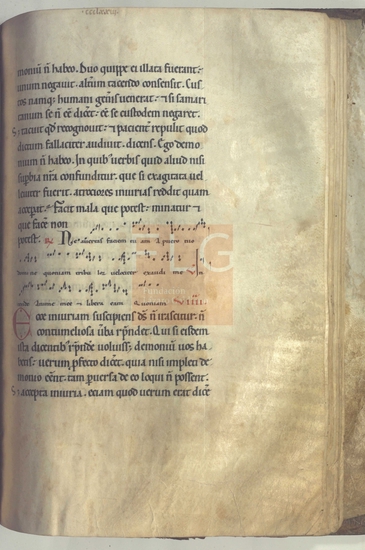 moniũ ñ habeo. Duo quippe ei illata fuerant:
unum negavit. alterũ tacendo consensit. Cus
tos namq; humani generis venerat. si samari
tanum se ñ eē diceret. eē se custodem negaret.
Sed tacuit qđ recognovit. patient repulit quod
dictum fallaciter audivit. dicens. Ego demo
nium ñ habeo. In quib verbis quid aliud nisi
supbia nra confunditur. que si exagitata vel
leviter fuerit. atrociores iniurias reddit quam
acceperit. Facit mala que potest. minatur
que facere non
potest. Ne avertas faciem tuam a puero tuo
domine quoniam tribulor velociter exaudi me
anime mee libera eam Quoniam
Ecce iniuriam suscipiens ds ñ irascitur. ñ
contumeliosa verba respondet. Qui si eisdem
ista dicentib respondere voluisset; demonium vos ha
betis. verum perfecto diceret. quia nisi impleti de
monio eent. tam perversa de deo loqui ñ possent.
Sed accepta iniuria. etiam quod verum erat dicere
FLG
Fundación